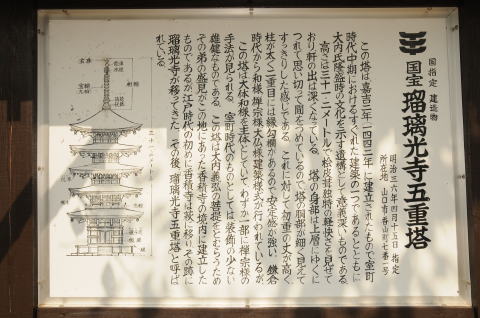 国指定 建造物
国宝 瑠璃光寺五重塔
明治三六年四月十五日 指定
所在地 山口市香山町七番一号
この塔は嘉吉二年(一四四二年)に建立されたもので室町
時代中期におけるすぐれた建築の一つであるとともに
大内氏隆盛時の文化を示す遺構として意義深いものである。
高さは三十一・二メートル、桧皮葺独特の軽快さを見せて
おり軒の出は深くなっている。塔の身部は上層にゆくに
つれて思い切って間をつめているので、塔の胴部が細く見えて
すっきりした感じである。これに対して初重の丈が高く、
柱が太く二重目には縁勾欄があるので安定感が強い。鎌倉
時代から和様、禅宗様、大仏様建築様式が行われているが、
この塔は大体和様を主体としていて、わずか一部に禅宗様の
手法が見られる。室町時代のものとしては装飾の少ない
雄健なものである。この塔は大内義弘の菩提をとむらうため
その弟の盛見がこの地にあった香積寺の境内に建立した
ものであるが江戸時代の初めに香積寺は萩に移り、その跡に
瑠璃光寺が移ってきた。その後、瑠璃光寺五重塔と呼ば
れている。
宝珠
相輪